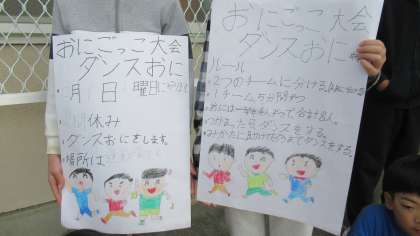 おにごっこ大会
ダンスおに
・月 日 曜日に
休み
・ダンスおにをします。
・場所は
おにごっこ大会
ダンスおに
ルール
・2つのチームに分ける
・1チーム5分間
・おには
合計8人。
・つかまったらダンスをする。
・みかたに助けてもらうまでダンスをする。